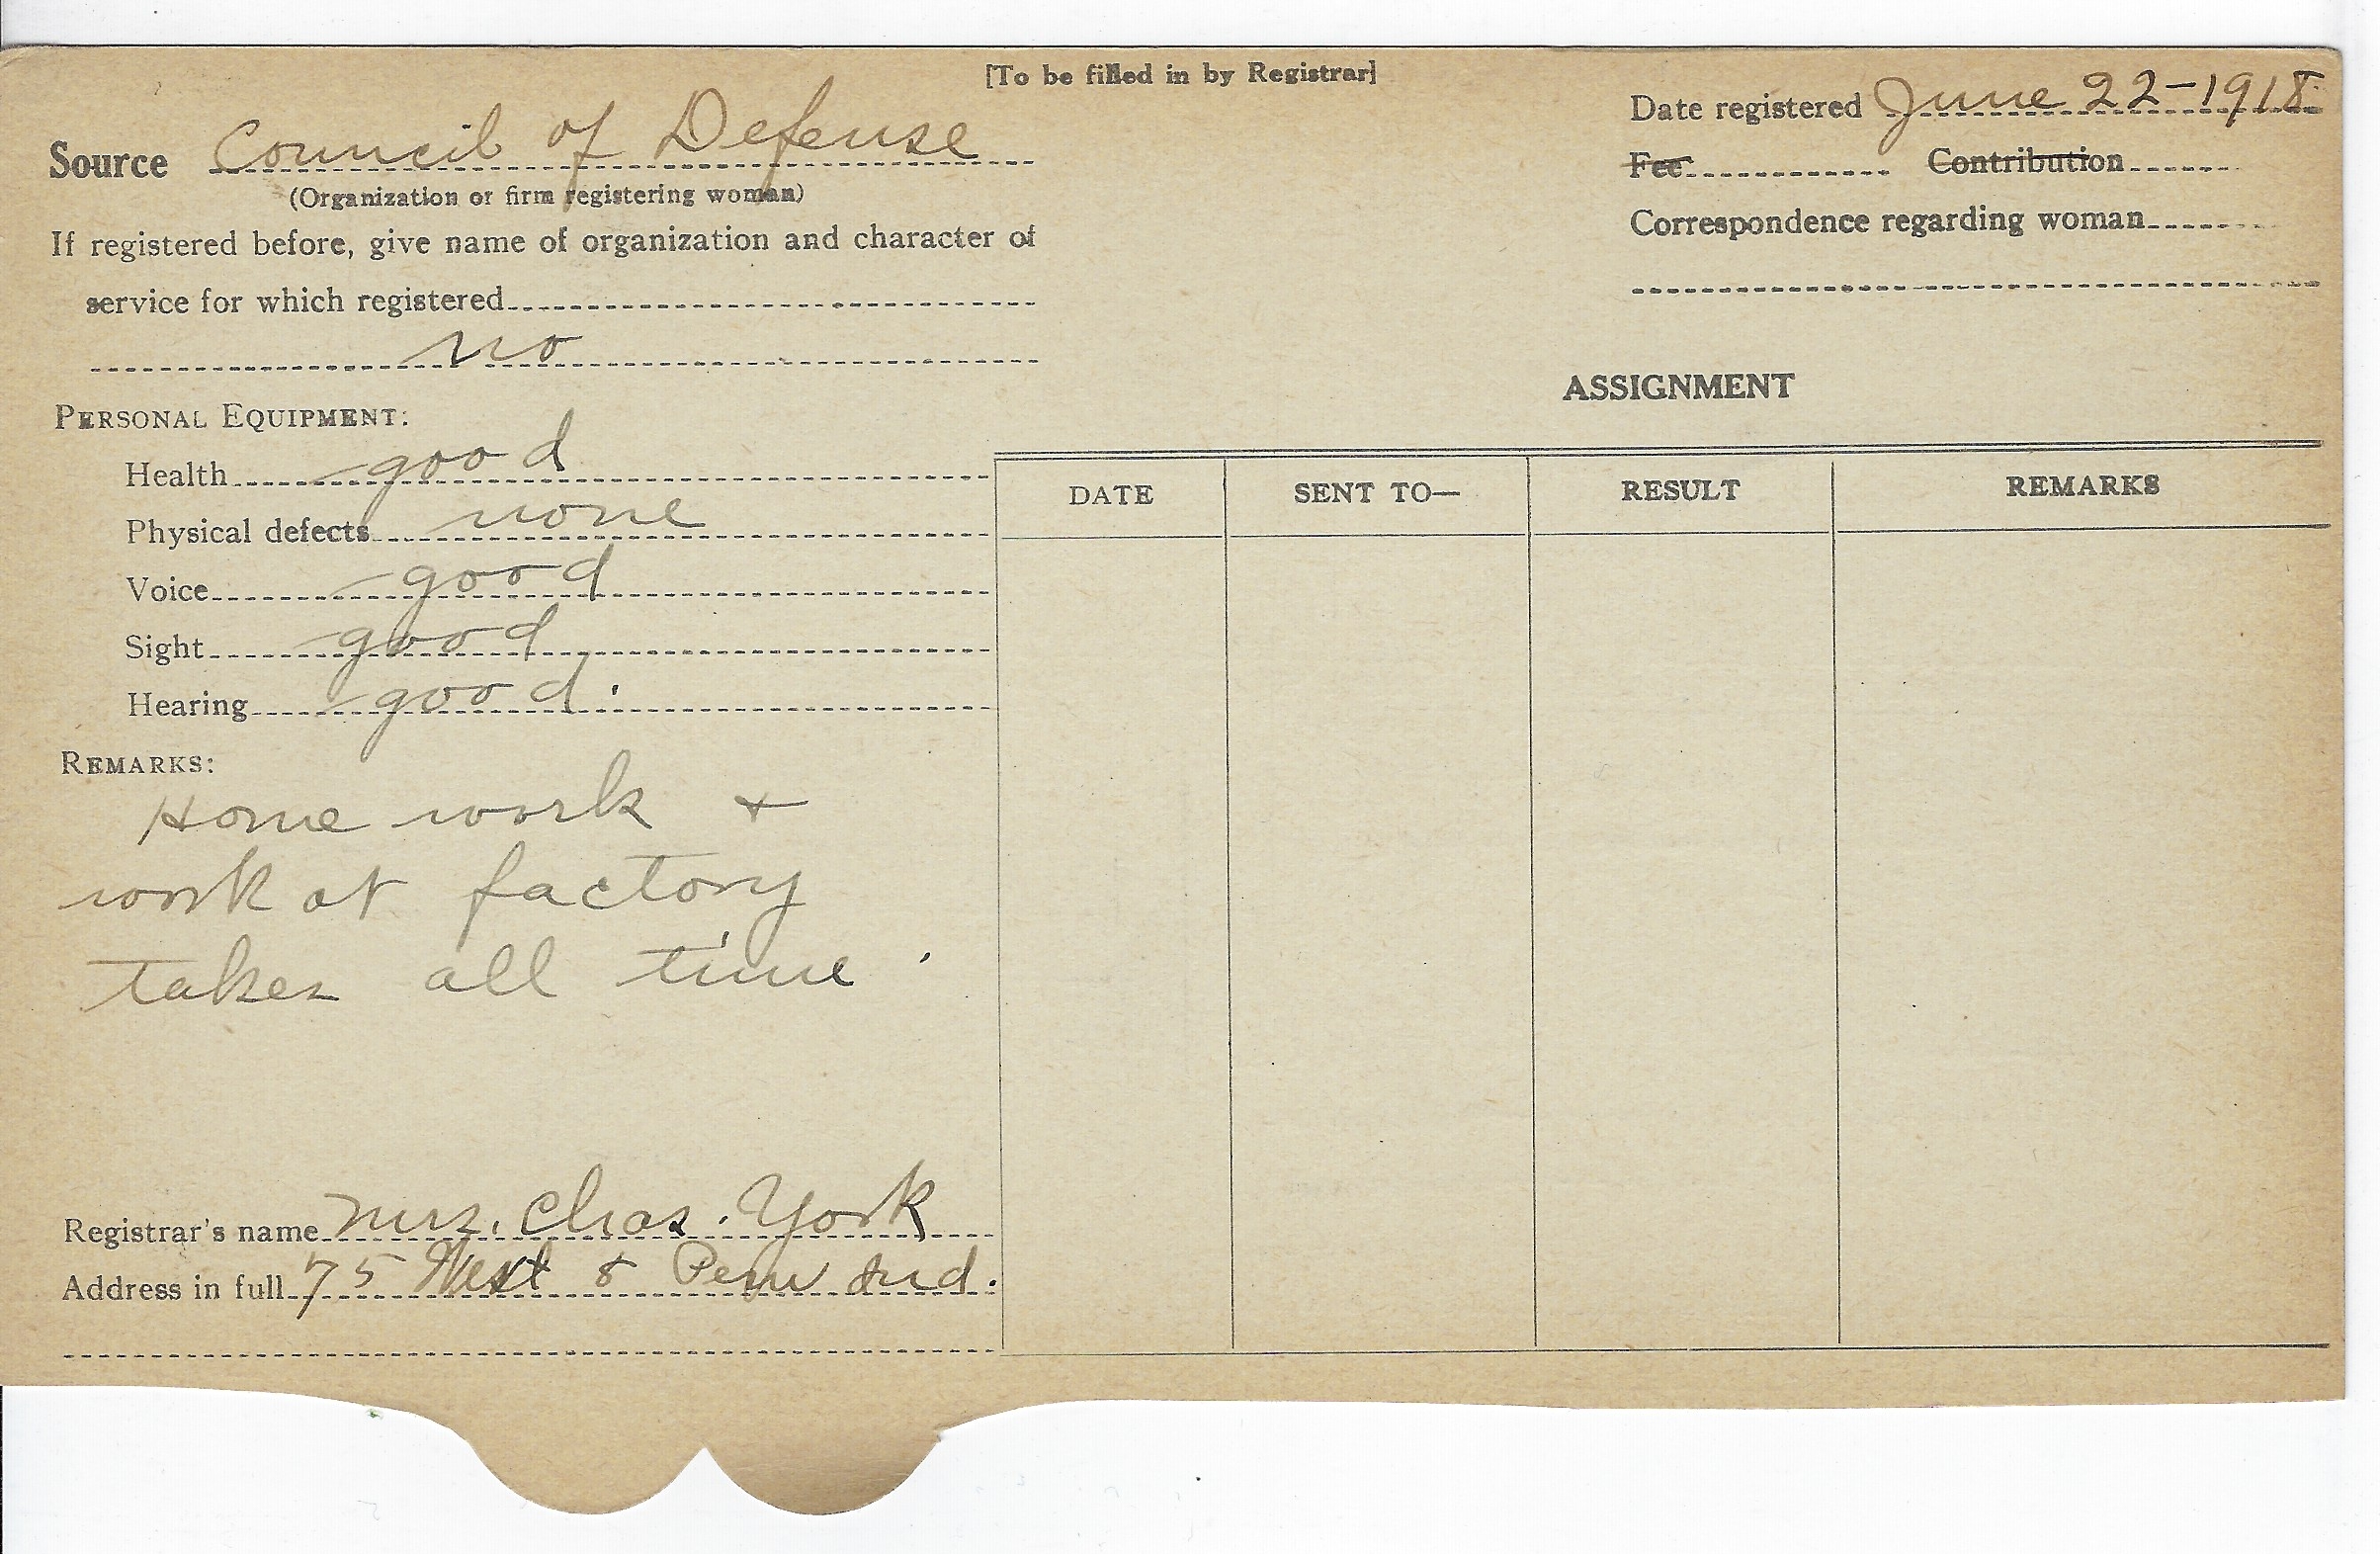 [To be filled in by Registrar]
Source Council of Defense
(Organization or firm registering woman)
If registered before, give name of organization and character of
service for which registered
no
PERSONAL EQUIPMENT:
Health good
Physical defects none
Voice good
Sight good
Hearing good.
REMARKS:
Home work +
work at factory
takes all time.
Registrar's name Mrs. Chas. York
Address in full 75 West 8 Peru Ind.
Date registered June 22-1918
Fee Contribution
Correspondence regarding woman
ASSIGNMENT
DATE SENT TO— RESULT REMARKS